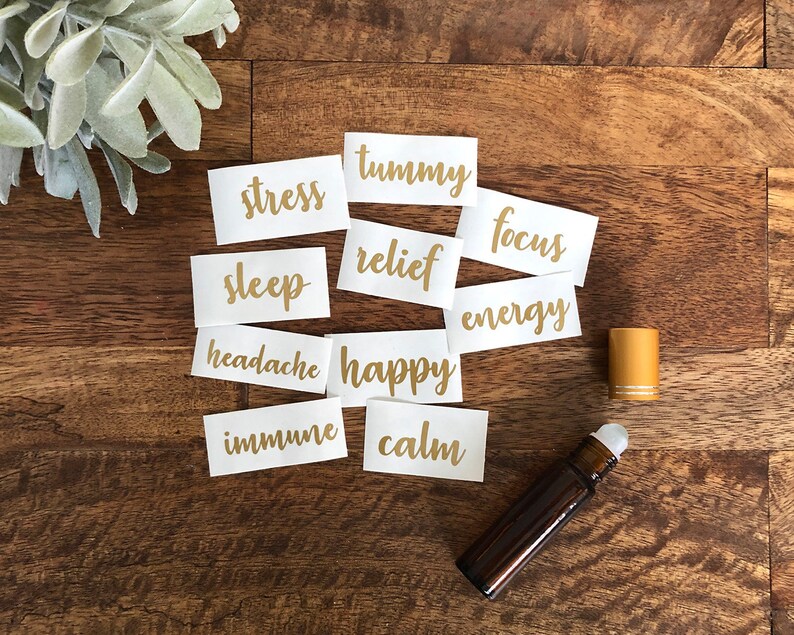 stress
tummy
focus
sleep
relief
energy
headache
happy
immune
calm